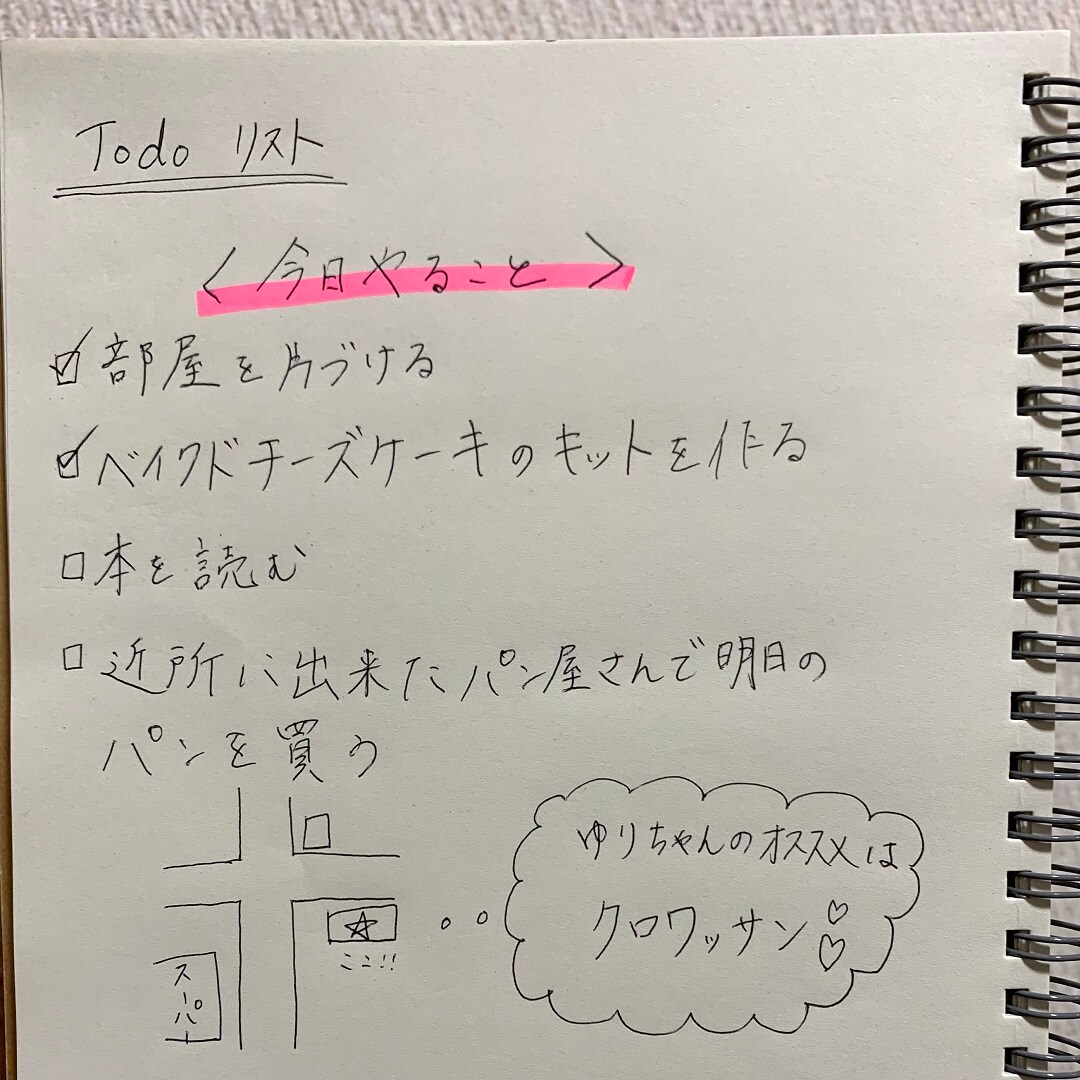 Todo リスト
〈 今日やること 〉
☑部屋を片づける
☑ベイクドチーズケーキのキットを作る
□本を読む
□近所に出来たパン屋さんで明日の
パンを買う
ゆりちゃんのオススメは
クロワッサン♡♡
☆
ここ!!
スーパー